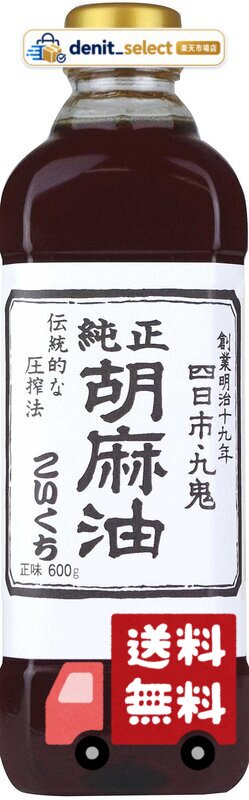 denit_select
楽天市場店
創業明治十九年
四日市・九鬼
純正
胡麻油
こいくち
伝統的な
圧搾法
正味 600g
送料
無料